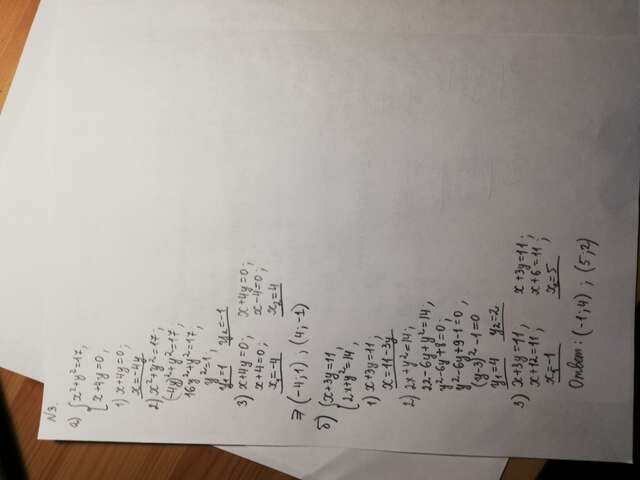 N3.
а) { x²+y²=17,
x+4y=0;
1) x+4y=0;
x=-4y
2) x²+y²=17;
(-4y)²+y²=17,
16y²+y²=17;
y²=1,
y₁=1 y₂=-1
3) x+4y=0; x+4y=0;
x+4=0; x-4=0;
x₁=-4 x₂=4
⇒ (-4;1) ; (4;-1)
б) { x+3y=11
2x+y²=14;
1) x+3y=11;
x=11-3y
2) 2x+y²=14;
22-6y+y²=14,
y²-6y+8=0;
y²-6y+9-1=0,
(y-3)²-1=0
y₁=4 y₂=2
3) x+3y=11; x+3y=11;
x+12=11; x+6=11;
x₁=-1 x₂=5
Ответ: (-1;4) ; (5;2)